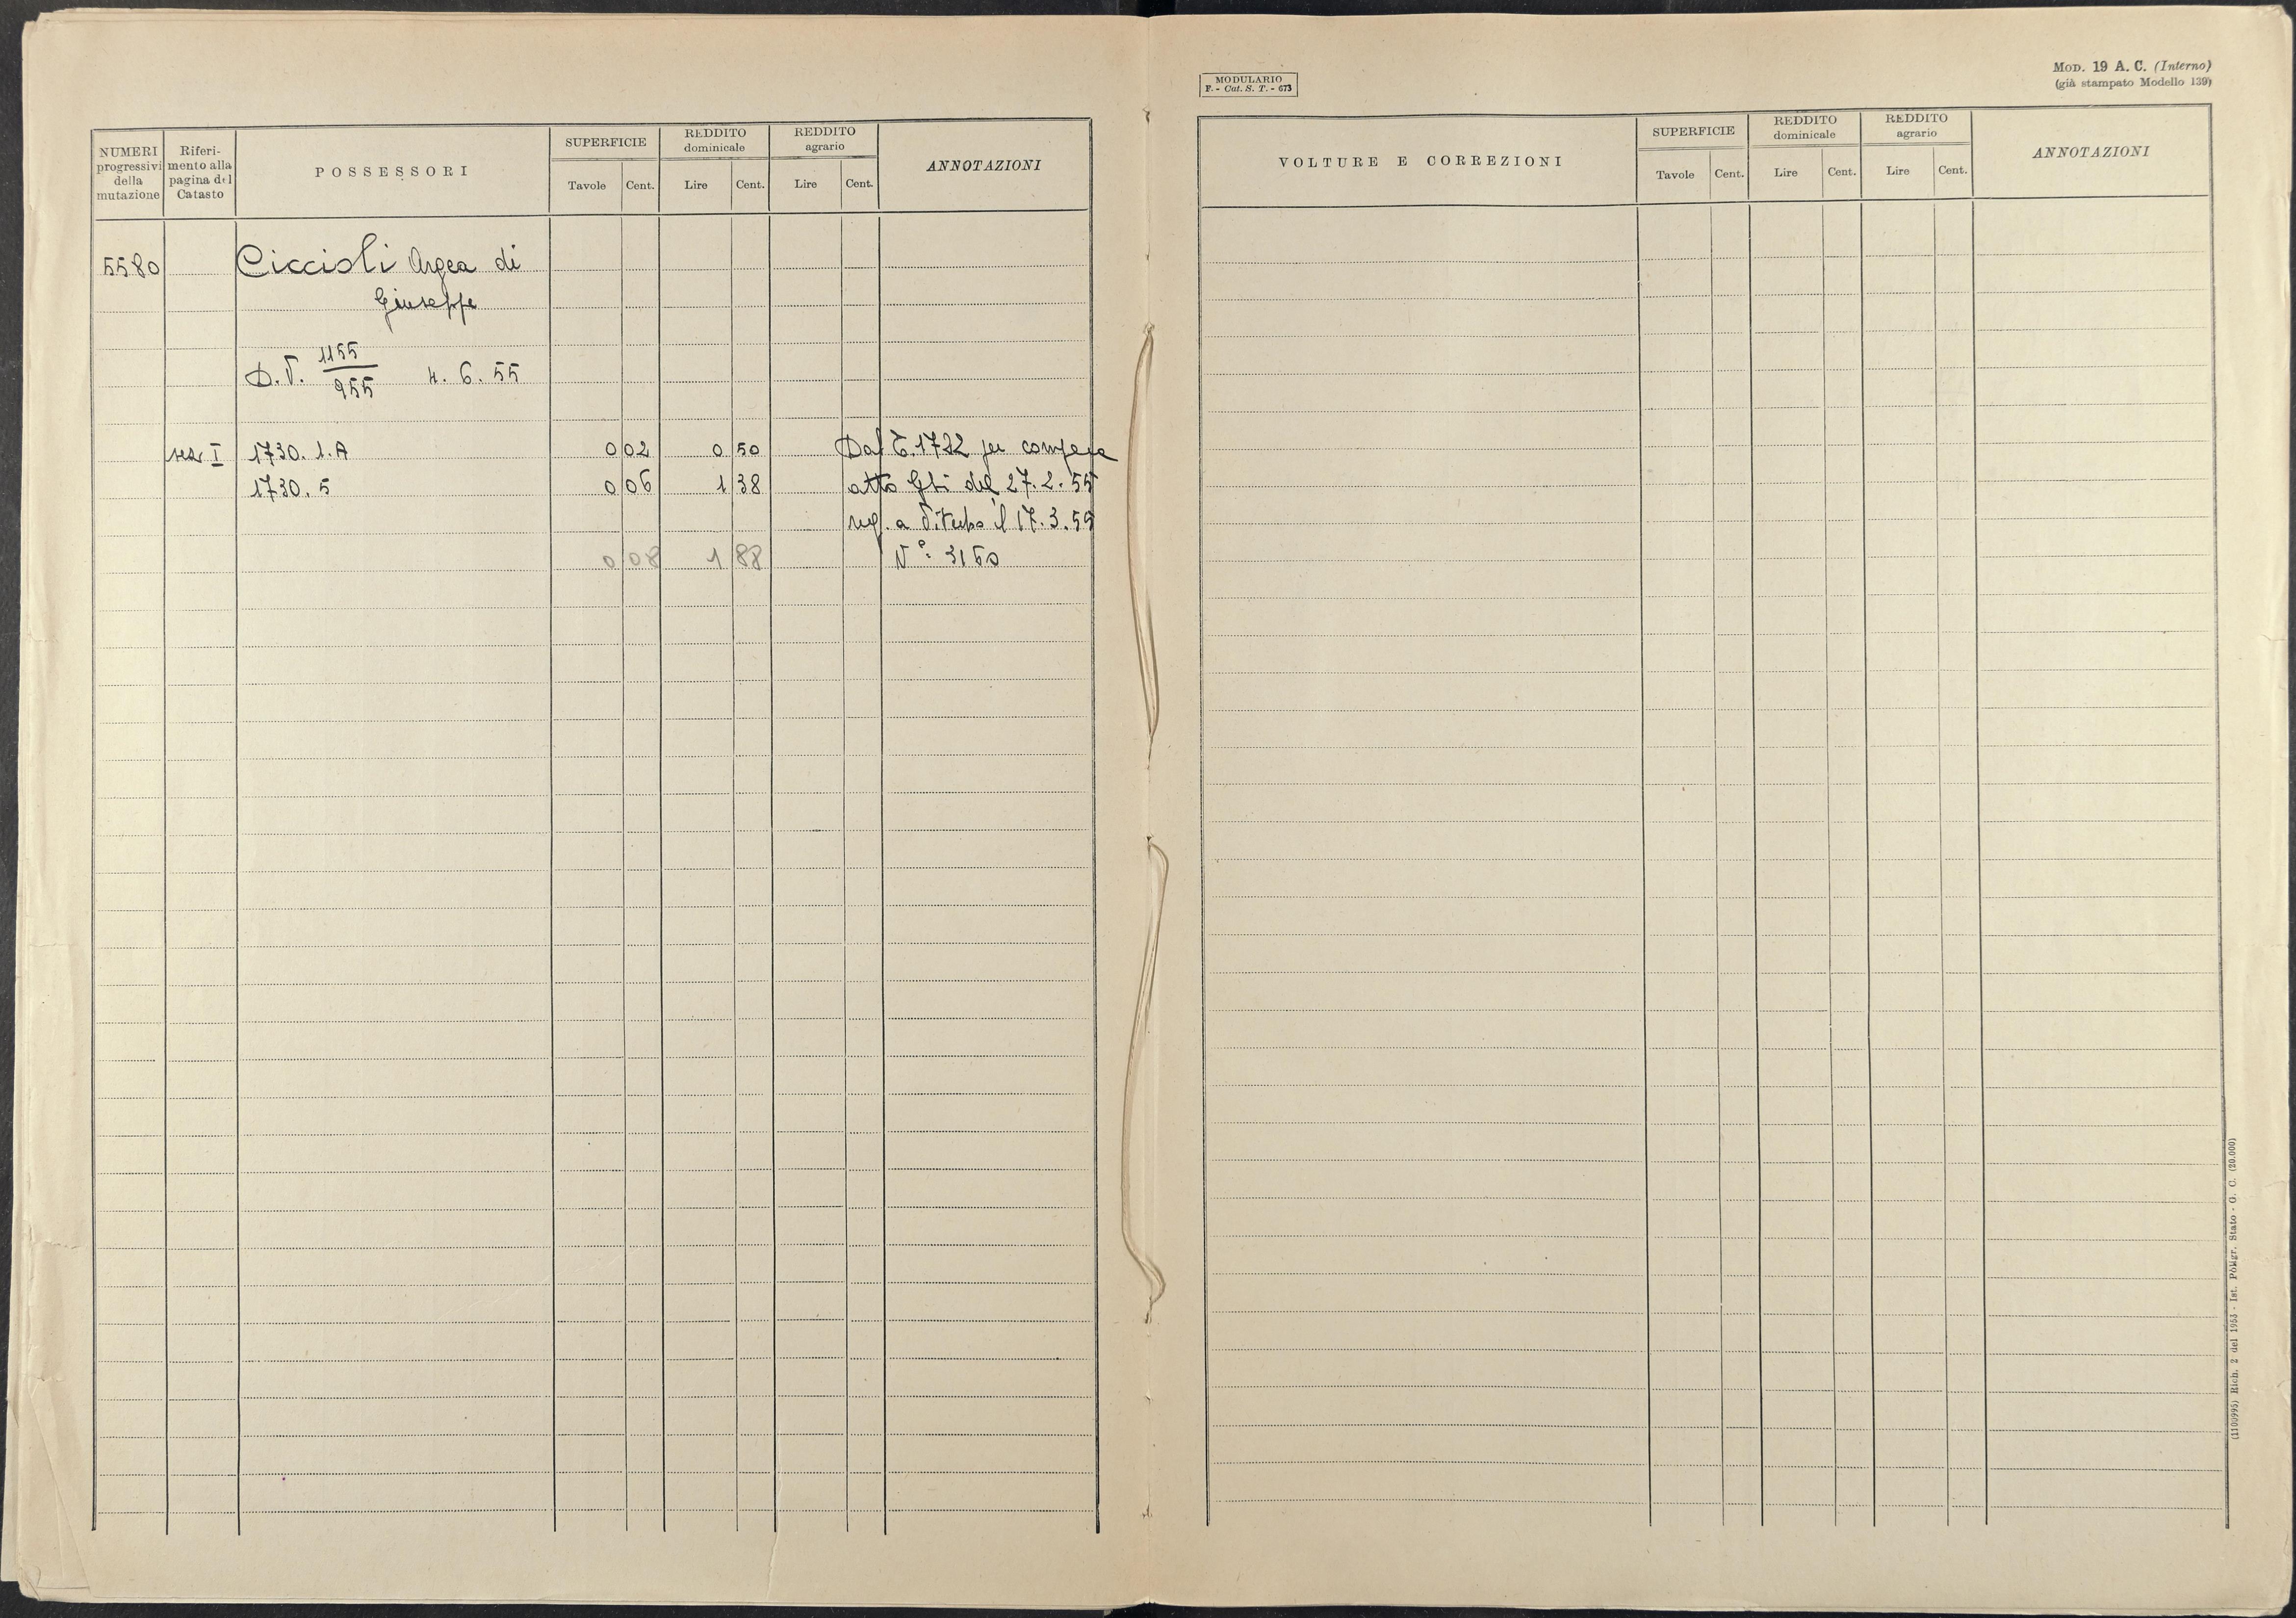 NUMERI progressivi della mutazione
Riferimento alla pagina del Catasto
POSSESSORI
SUPERFICIE
Tavole Cent.
REDDITO dominicale
Lire Cent.
REDDITO agrario
Lire Cent.
ANNOTAZIONI
5580 Ciccioli Argea di
Giuseppe
D.V. 1155/955 4.6.55
sez I 1730.1.A 0 02 0 50 Dal C.1722 per compera
1730.5 0 06 1 38 atto Gbi del 27.2.55
reg. a il 17.3.55
0 08 1 88 N°: 3150
MODULARIO
F. - Cat. S. T. - 673
MOD. 19 A. C. (Interno)
(già stampato Modello 139)
VOLTURE E CORREZIONI
SUPERFICIE
Tavole Cent.
REDDITO dominicale
Lire Cent.
REDDITO agrario
Lire Cent.
ANNOTAZIONI
(1100995) Rich. 2 del 1953 - Ist. Poligr. Stato - G. C. (20.000)